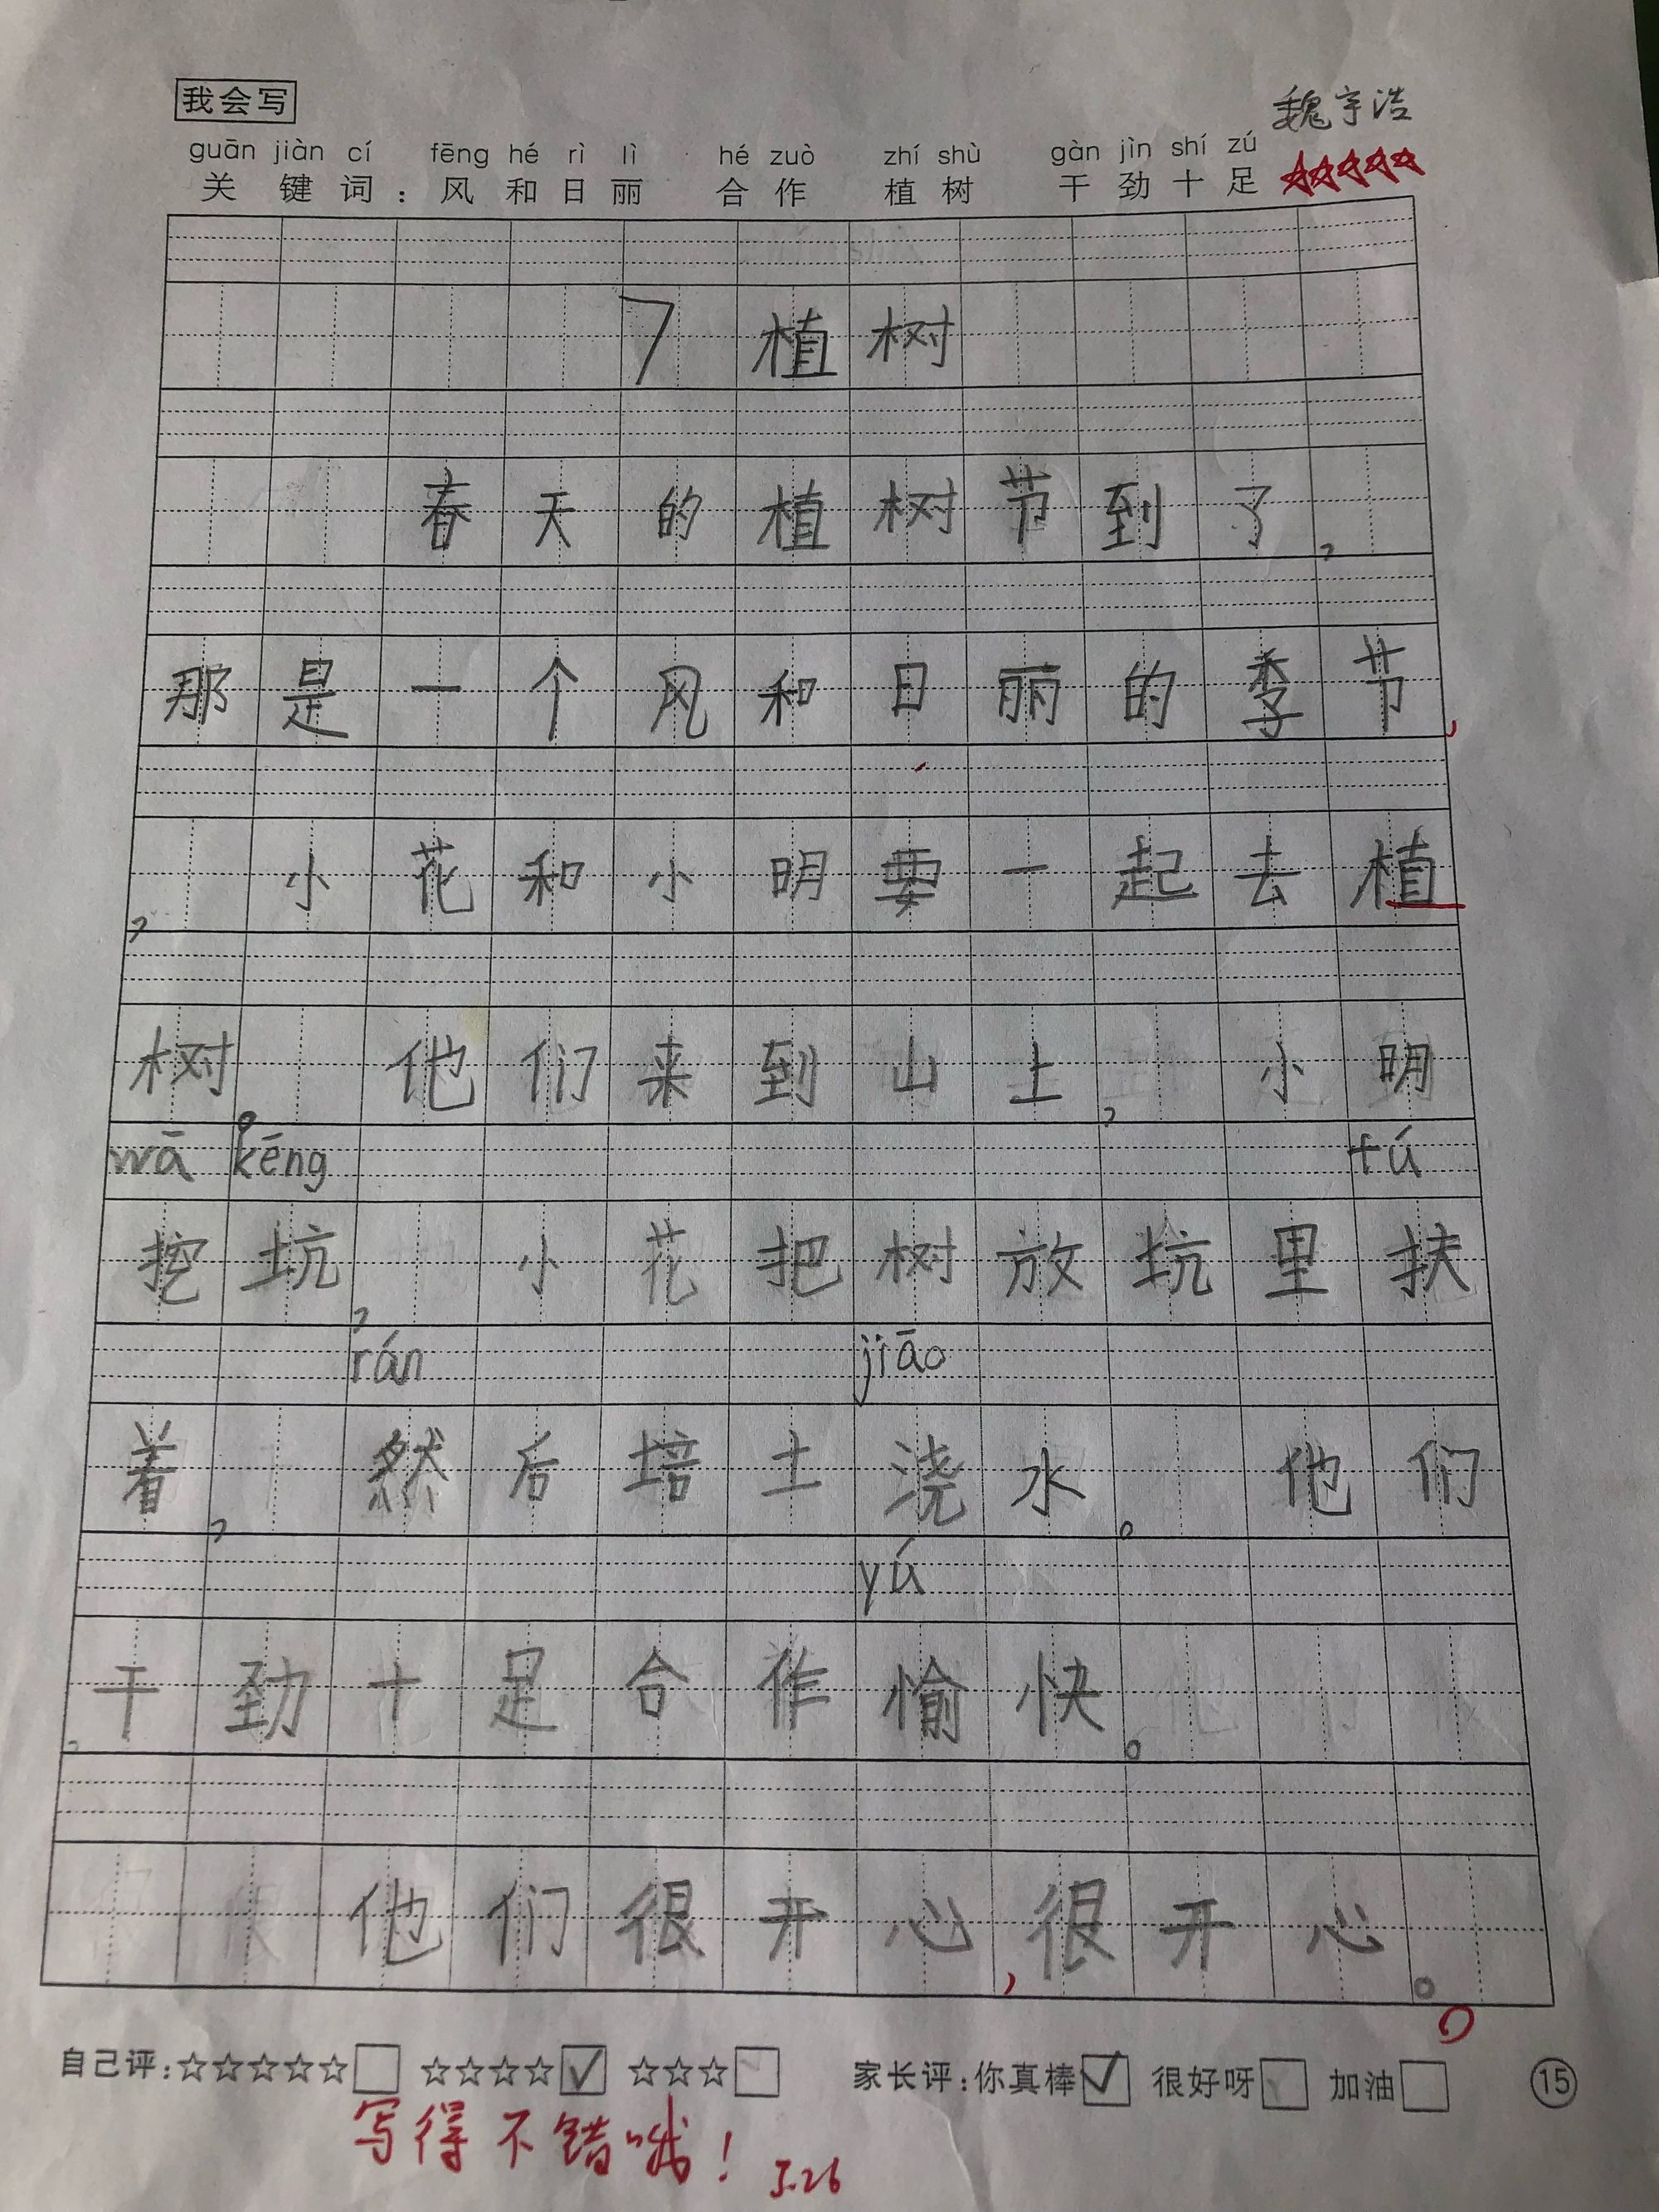 我会写
魏宇浩
guān jiàn cí fēng hé rì lì hé zuò zhí shù gàn jìn shí zú
关键词：风和日丽 合作 植树 干劲十足
☆☆☆☆☆
7 植树
春天的植树节到了，
那是一个风和日丽的季节，
，小花和小明要一起去植
树。他们来到山上，小明
wā kēng fú
挖坑，小花把树放坑里扶
rán jiāo
着，然后培土浇水。他们
yú
，干劲十足合作愉快。
他们很开心，很开心。
自己评：☆☆☆☆☆ ☆☆☆☆ ✓ ☆☆☆ 家长评：你真棒 ✓ 很好呀 加油 15
写得不错哦！ 5.26